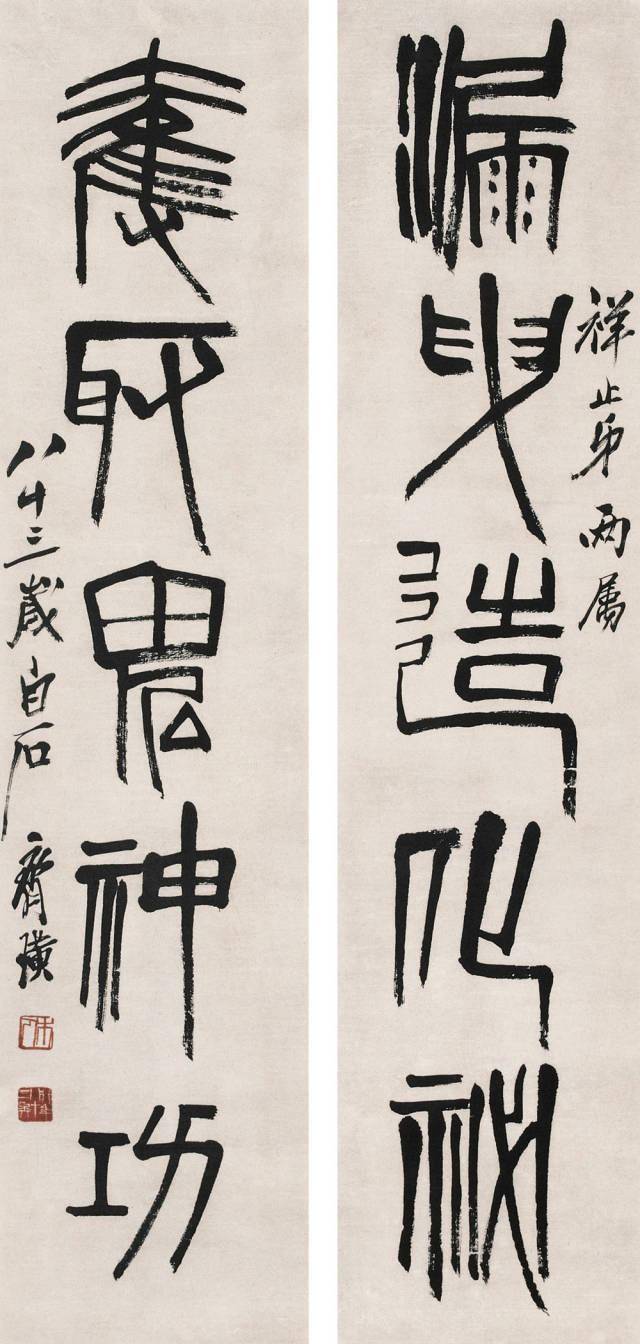 漏曳造化秘
祥止弟兩属
奪取鬼神功
八十三歲白石齊璜